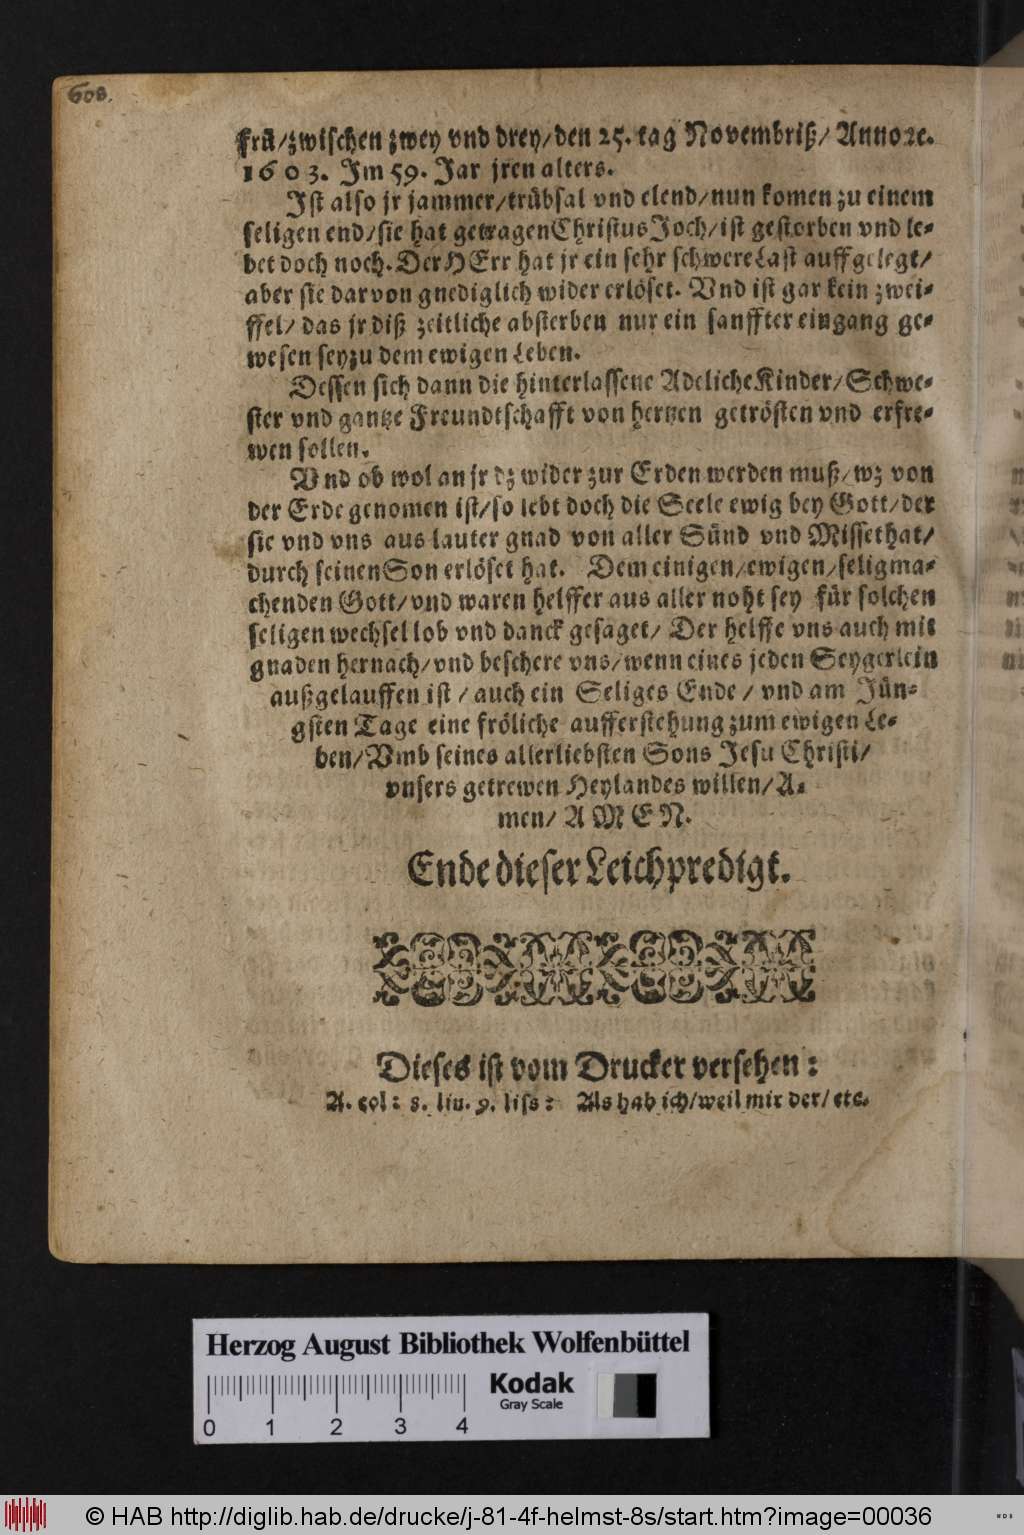 608.
frü/zwischen zwey vnd drey/den 25. tag Novembriß/ Anno ꝛc.
1603. Im 59. Jar jren alters.
Ist also jr jammer/trübsal vnd elend/nun komen zu einem
seligen end/sie hat getragen Christus Joch/ist gestorben vnd le-
bet doch noch. Der HErr hat jr ein sehr schwere Last auffgelegt/
aber sie darvon gnediglich wider erlöset. Vnd ist gar kein zwei-
ffel/ das jr diß zeitliche absterben nur ein sanffter eingang ge-
wesen sey zu dem ewigen Leben.
Dessen sich dann die hinterlassene Adeliche Kinder/Schwe-
ster vnd gantze Freundtschafft von hertzen getrösten vnd erfre-
wen sollen.
Vnd ob wol an jr dz wider zur Erden werden muß/wz von
der Erde genomen ist/so lebt doch die Seele ewig bey Gott/der
sie vnd vns aus lauter gnad von aller Sünd vnd Missethat/
durch seinen Son erlöset hat. Dem einigen/ewigen/seligma-
chenden Gott/vnd waren helffer aus aller noht sey für solchen
seligen wechsel lob vnd danck gesaget/ Der helffe vns auch mit
gnaden hernach/vnd beschere vns/wenn eines jeden Seygerlein
außgelauffen ist / auch ein Seliges Ende / vnd am Jün-
gsten Tage eine fröliche aufferstehung zum ewigen Le-
ben/Vmb seines allerliebsten Sons Jesu Christi/
vnsers getrewen Heylandes willen/A-
men/ AMEN.
Ende dieser Leichpredigt.
Dieses ist vom Drucker versehen:
A. col: 8. lin. 9. liss: Als hab ich/weil mir der/ etc.
Herzog August Bibliothek Wolfenbüttel
Kodak
Gray Scale
0 1 2 3 4
© HAB http://diglib.hab.de/drucke/j-81-4f-helmst-8s/start.htm?image=00036